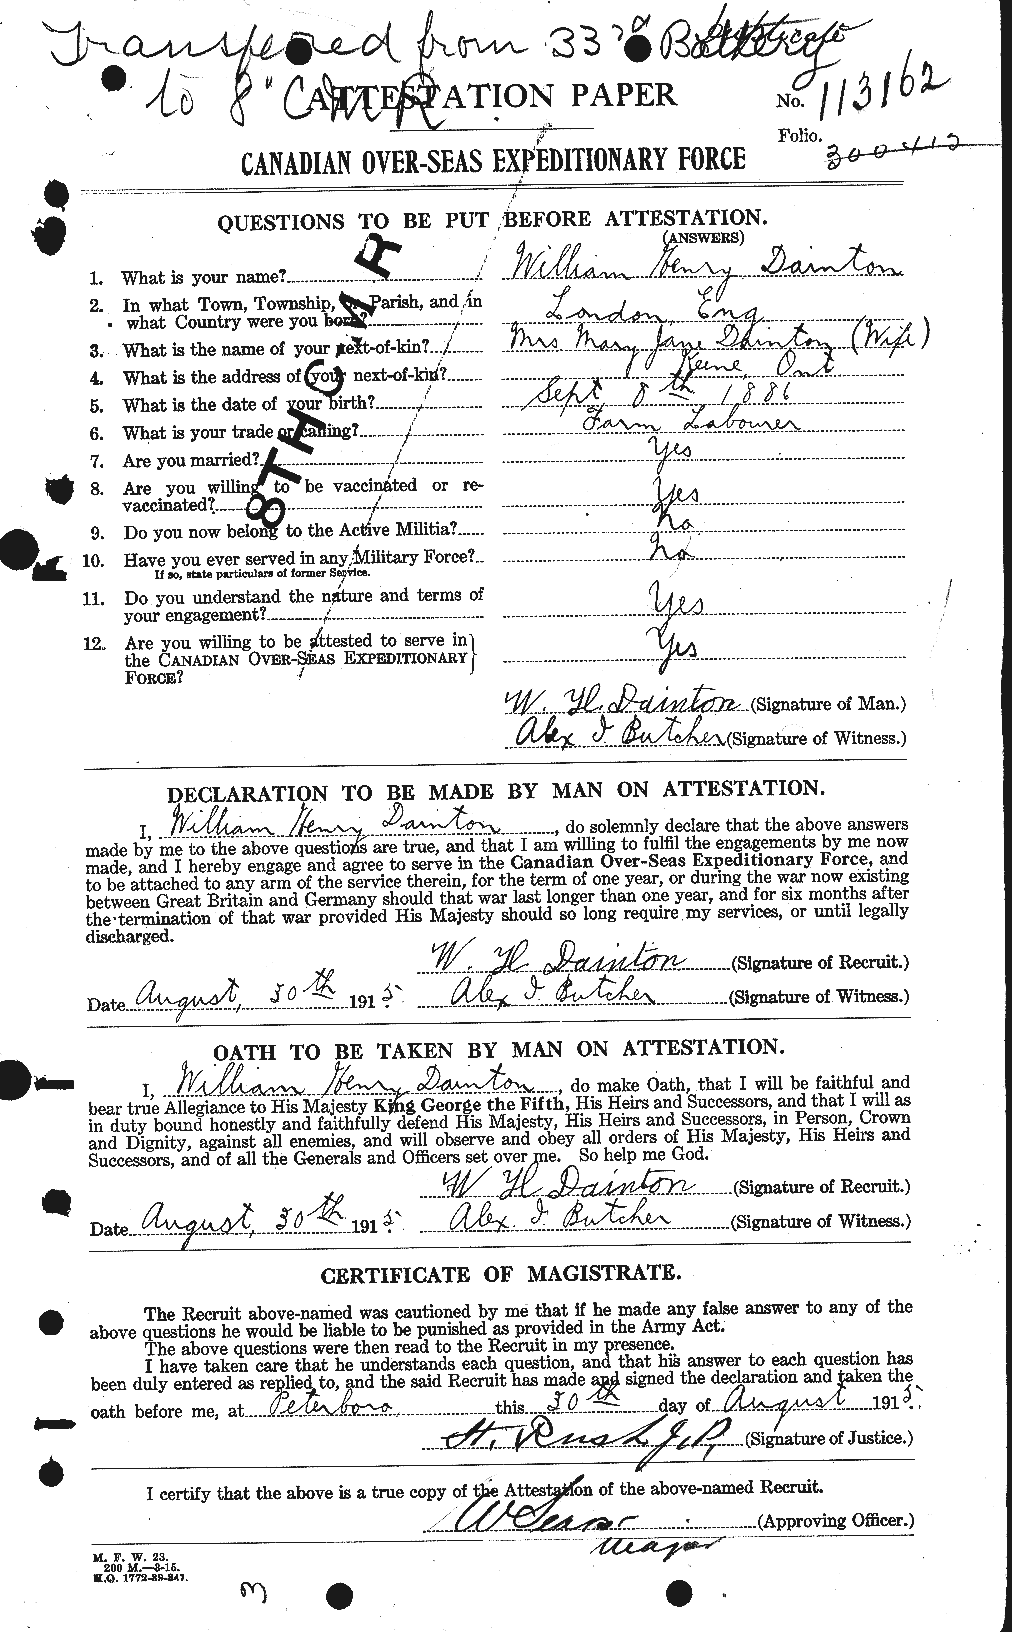 Transferred from 33rd Battery
Duplicate
to 8" C M R
ATTESTATION PAPER
No. 113162
Folio. 300412
CANADIAN OVER-SEAS EXPEDITIONARY FORCE
QUESTIONS TO BE PUT BEFORE ATTESTATION.
(ANSWERS)
8TH C M R
1. What is your name? William Henry Dainton
2. In what Town, Township, or Parish, and in
what Country were you born? London, Eng
3. What is the name of your next-of-kin? Mrs Mary Jane Dainton (Wife)
4. What is the address of your next-of-kin? Keene, Ont
5. What is the date of your birth? Sept 8th 1886
6. What is your trade or calling? Farm Labourer
7. Are you married? Yes
8. Are you willing to be vaccinated or re-
vaccinated? Yes
9. Do you now belong to the Active Militia? No
10. Have you ever served in any Military Force? No
If so, state particulars of former Service.
11. Do you understand the nature and terms of
your engagement? Yes
12. Are you willing to be attested to serve in
the CANADIAN OVER-SEAS EXPEDITIONARY Yes
FORCE?
W. H. Dainton (Signature of Man.)
Alex I Butcher (Signature of Witness.)
DECLARATION TO BE MADE BY MAN ON ATTESTATION.
I, William Henry Dainton, do solemnly declare that the above answers
made by me to the above questions are true, and that I am willing to fulfil the engagements by me now
made, and I hereby engage and agree to serve in the Canadian Over-Seas Expeditionary Force, and
to be attached to any arm of the service therein, for the term of one year, or during the war now existing
between Great Britain and Germany should that war last longer than one year, and for six months after
the termination of that war provided His Majesty should so long require my services, or until legally
discharged.
W. H Dainton (Signature of Recruit.)
Date August, 30th 1915 Alex I Butcher (Signature of Witness.)
OATH TO BE TAKEN BY MAN ON ATTESTATION.
I, William Henry Dainton, do make Oath, that I will be faithful and
bear true Allegiance to His Majesty King George the Fifth, His Heirs and Successors, and that I will as
in duty bound honestly and faithfully defend His Majesty, His Heirs and Successors, in Person, Crown
and Dignity, against all enemies, and will observe and obey all orders of His Majesty, His Heirs and
Successors, and of all the Generals and Officers set over me. So help me God.
W H Dainton (Signature of Recruit.)
Date August, 30th 1915 Alex. I Butcher (Signature of Witness.)
CERTIFICATE OF MAGISTRATE.
The Recruit above-named was cautioned by me that if he made any false answer to any of the
above questions he would be liable to be punished as provided in the Army Act.
The above questions were then read to the Recruit in my presence.
I have taken care that he understands each question, and that his answer to each question has
been duly entered as replied to, and the said Recruit has made and signed the declaration and taken the
oath before me, at Peterboro, this 30th day of August 1915.
H. Rush J.P. (Signature of Justice.)
I certify that the above is a true copy of the Attestation of the above-named Recruit.
(Approving Officer.)
Major
M. F. W. 23.
200 M.—3-15.
H.Q. 1772-39-347.
3